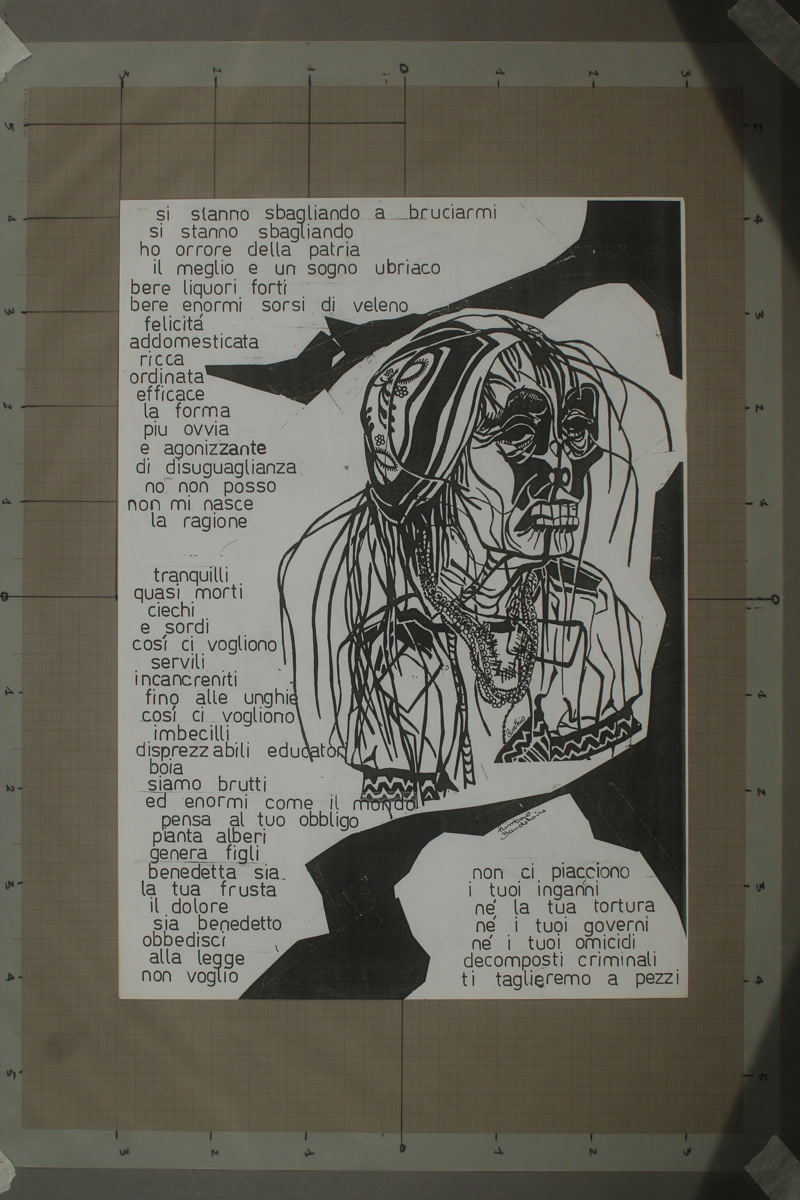 si stanno sbagliando a bruciarmi
si stanno sbagliando
ho orrore della patria
il meglio e un sogno ubriaco
bere liquori forti
bere enormi sorsi di veleno
felicitá
addomesticata
ricca
ordinata
efficace
la forma
piu ovvia
e agonizzante
di disuguaglianza
no non posso
non mi nasce
la ragione
tranquilli
quasi morti
ciechi
e sordi
cosí ci vogliono
servili
incancreniti
fino alle unghie
cosí ci vogliono
imbecilli
disprezzabili educatori
boia
siamo brutti
ed enormi come il mondo
pensa al tuo obbligo
pianta alberi
genera figli
benedetta sia
la tua frusta
il dolore
sia benedetto
obbedisci
alla legge
non voglio
non ci piacciono
i tuoi inganni
né la tua tortura
né i tuoi governi
né i tuoi omicidi
decomposti criminali
ti taglieremo a pezzi